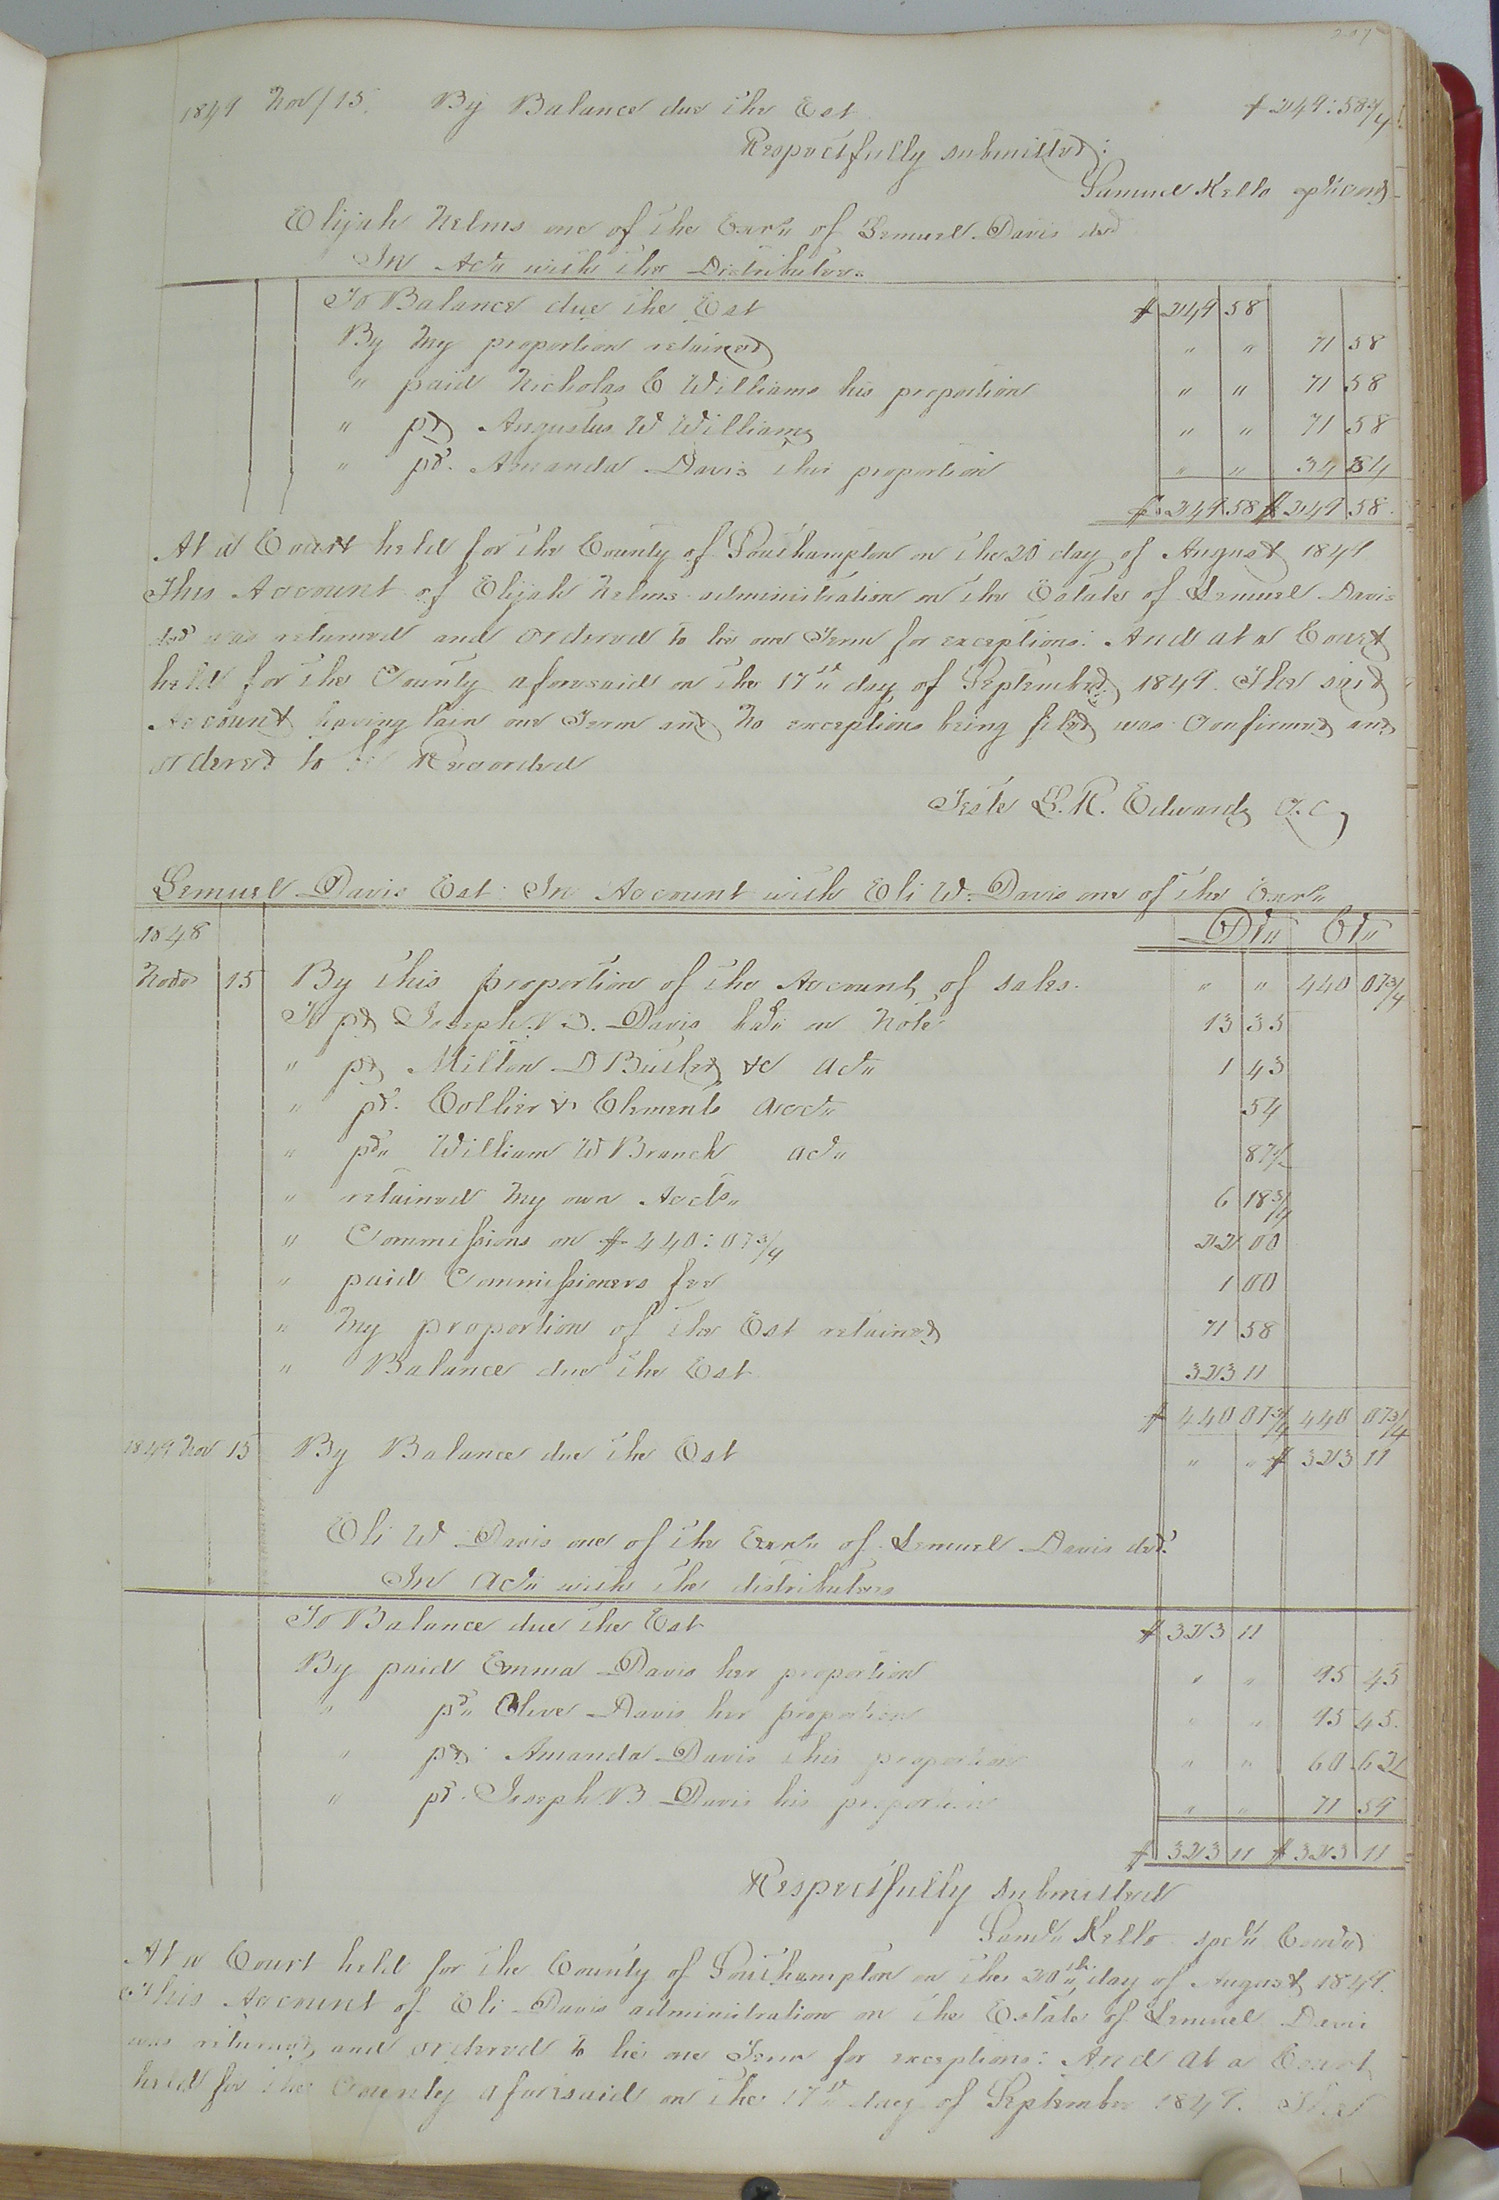 1849 Nov/15. By Balance due the Est $249:58¾
Respectfully submitted:
Samuel Kello
Elijah Helms one of the Exors of Lemuel Davis decd
In Act" with the Distributors
To Balance due the Est $ 249 58
By My proportion retained " " 71 58
" paid Nicholas C Williams his proportion " " 71 58
" pd Augustus W Williams " " 71 58
" pd. Amanda Davis this proportion " " 34 84
$ 249 58 $ 249 58
At a Court held for the County of Southampton on the 20 day of August 1849
This Account of Elijah Helms administration on the Estate of Lemuel Davis
decd was returned and ordered to lie one Term for exceptions: And at a Court
held for the County aforesaid on the 17th day of September 1849. The said
Account having lain one Term and No exceptions being filed was Confirmed and
ordered to be Recorded
Teste L. R. Edwards C. C
Lemuel Davis Est In Account with Eli W. Davis one of the Exors
1848 Dr" Cr"
Nov 15 By this proportion of the Account of sales. " " 440 07¾
To pd Joseph N. D. Davis bal" on Note 13 35
" pd Milton D Butler &c act" 1 43
" pd. Collier & Clements acct" 54
" pd" William W Branch act" 87½
" retained My own Accts" 6 18¾
" Commissions on $440:07¾ 22 00
" paid Commissioners fee 1 00
" My proportion of the Est retained 71 58
" Balance due the Est 323 11
$ 440 07¾ 440 07¾
1849 Nov 15 By Balance due the Est " " $ 323 11
Eli W Davis one of the Exors of Lemuel Davis decd.
In Act" with the distributors
To Balance due the Est $ 323 11
By paid Emma Davis her proportion " " 95 45
" pd" Olive Davis her proportion " " 95 45.
" pd. Amanda Davis this proportion " " 60 62
" pd. Joseph B Davis his proportion " " 71 59
$ 323 11 $ 323 11
Respectfully submitted
Saml" Kello spcl" Comr"
At a Court held for the County of Southampton on the 20th day of August 1849.
This Account of Eli Davis administration on the Estate of Lemuel Davis
was returned and ordered to lie one Term for exceptions: And at a Court
held for the County aforesaid on the 17th day of September 1849. The